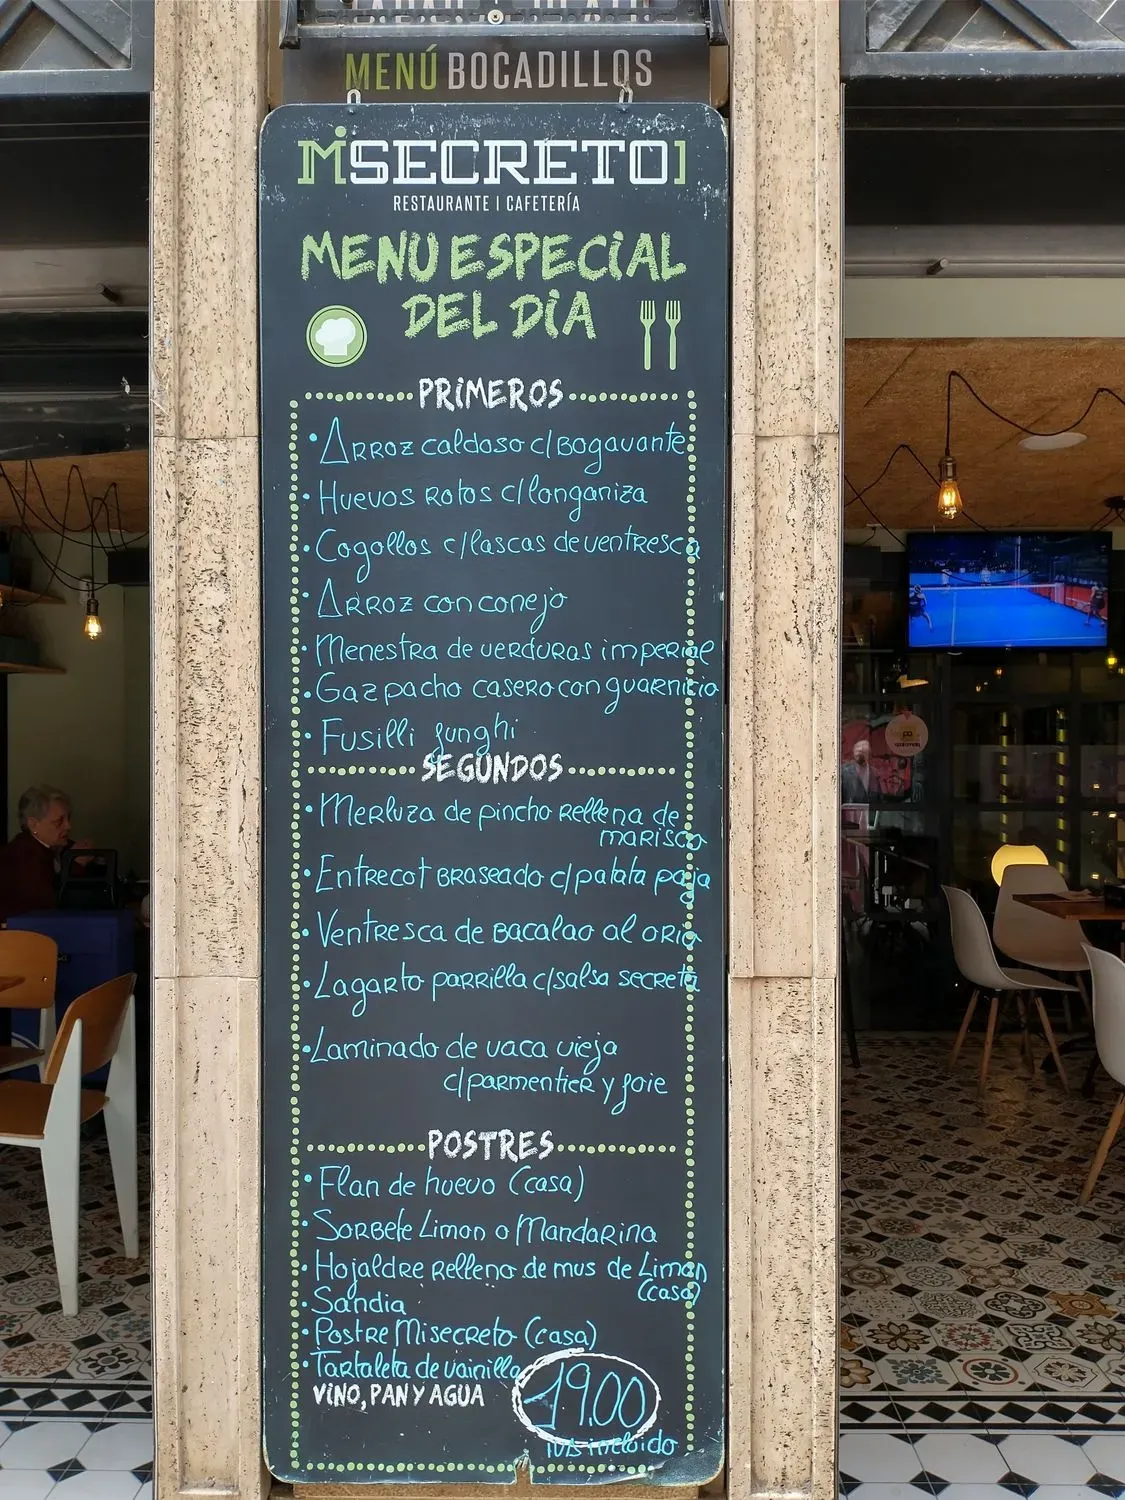 MENÚ BOCADILLOS
MiSECRETO
RESTAURANTE | CAFETERÍA
MENU ESPECIAL
DEL DIA
PRIMEROS
· Arroz caldoso c/Bogavante
· Huevos Rotos c/longaniza
· Cogollos c/lascas de ventresca
· Arroz con conejo
· Menestra de verduras imperial
· Gazpacho casero con guarnicio
· Fusilli funghi
SEGUNDOS
· Merluza de pincho Rellena de
marisco
· Entrecot Braseado c/patata paja
· Ventresca de Bacalao al oria
· Lagarto parrilla c/salsa secreta
· Laminado de vaca vieja
c/parmentier y foie
POSTRES
· Flan de huevo (casa)
· Sorbete Limon o Mandarina
· Hojaldre Relleno de mus de Limon
(casa)
· Sandia
· Postre Misecreto (casa)
· Tartaleta de vainilla
VINO, PAN Y AGUA
19,00
incluido